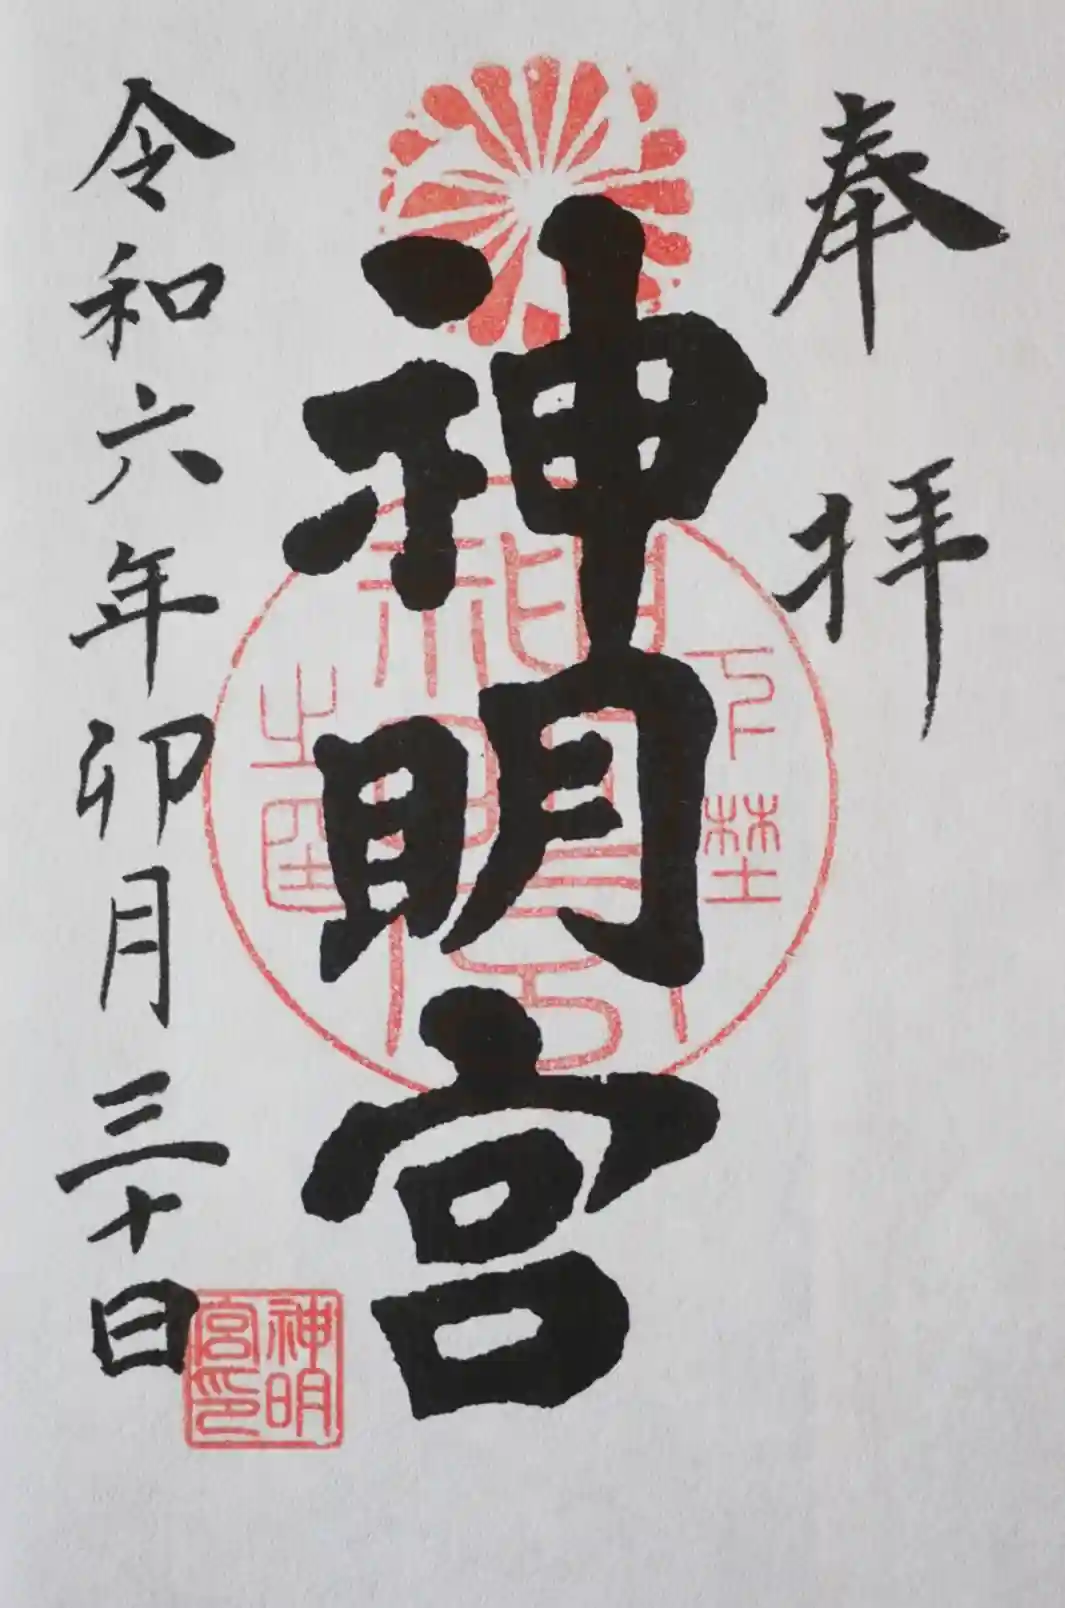 奉拝
神明宮
令和六年卯月三十日
下埜
神明宮
之印
神明宮印